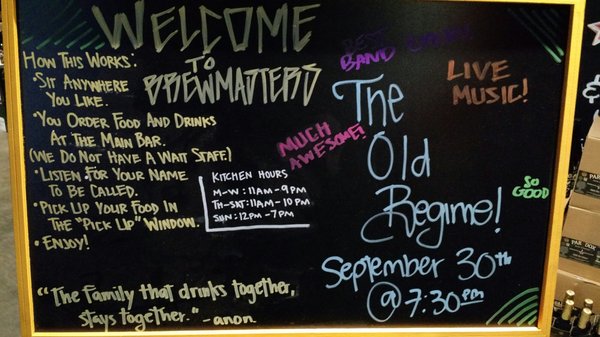 WELCOME
TO
BREWMASTERS
HOW THIS WORKS:
SIT ANYWHERE
YOU LIKE.
• YOU ORDER FOOD AND DRINKS
AT THE MAIN BAR.
(WE DO NOT HAVE A WAIT STAFF.)
• LISTEN FOR YOUR NAME
TO BE CALLED.
• PICK UP YOUR FOOD IN
THE "PICK UP" WINDOW.
• ENJOY!
KITCHEN HOURS
M-W: 11AM-9PM
TH-SAT: 11AM-10PM
SUN: 12PM-7PM
"The family that drinks together,
stays together." -anon
BEST
BAND EVER!
LIVE
MUSIC!
MUCH
AWESOME!
The
Old
Regime!
SO
GOOD
September 30th
@ 7:30PM